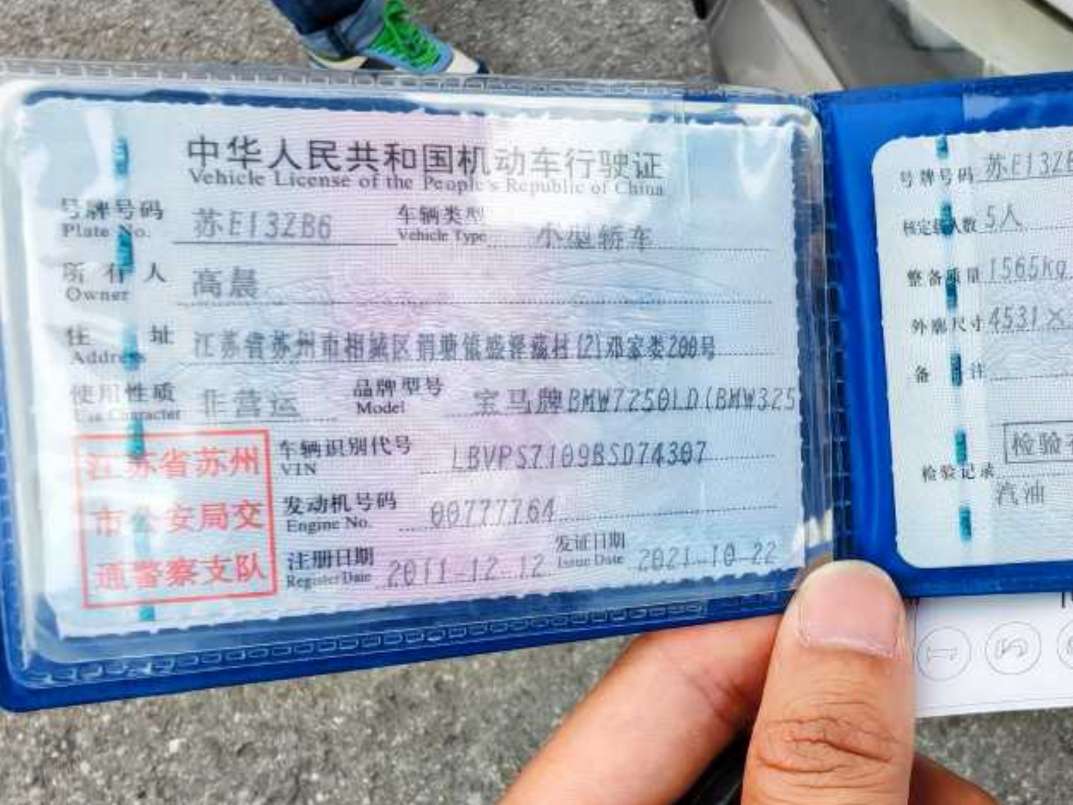 中华人民共和国机动车行驶证
Vehicle License of the People's Republic of China
号牌号码 苏E13ZB6 车辆类型 小型轿车
Plate No. Vehicle Type
所有人 高晨
Owner
住址 江苏省苏州市相城区 村(2)邓家娄200号
Address
使用性质 非营运 品牌型号 宝马牌BMW7250LD(BMW325
Use Character Model
江苏省苏州
市公安局交
通警察支队
车辆识别代号 LBVPS7109BSD74307
VIN
发动机号码 00777764
Engine No.
注册日期 2011-12-12 发证日期 2021-10-22
Register Date Issue Date
号牌号码 苏E13ZB
核定载人数 5人
整备质量 1565kg
外廓尺寸 4531×
备注
检验记录
检验
汽油